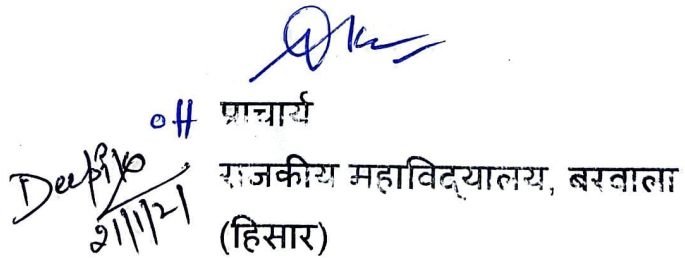 off प्राचार्य
राजकीय महाविद्यालय, बरवाला
Deepika
21/1/21
(हिसार)